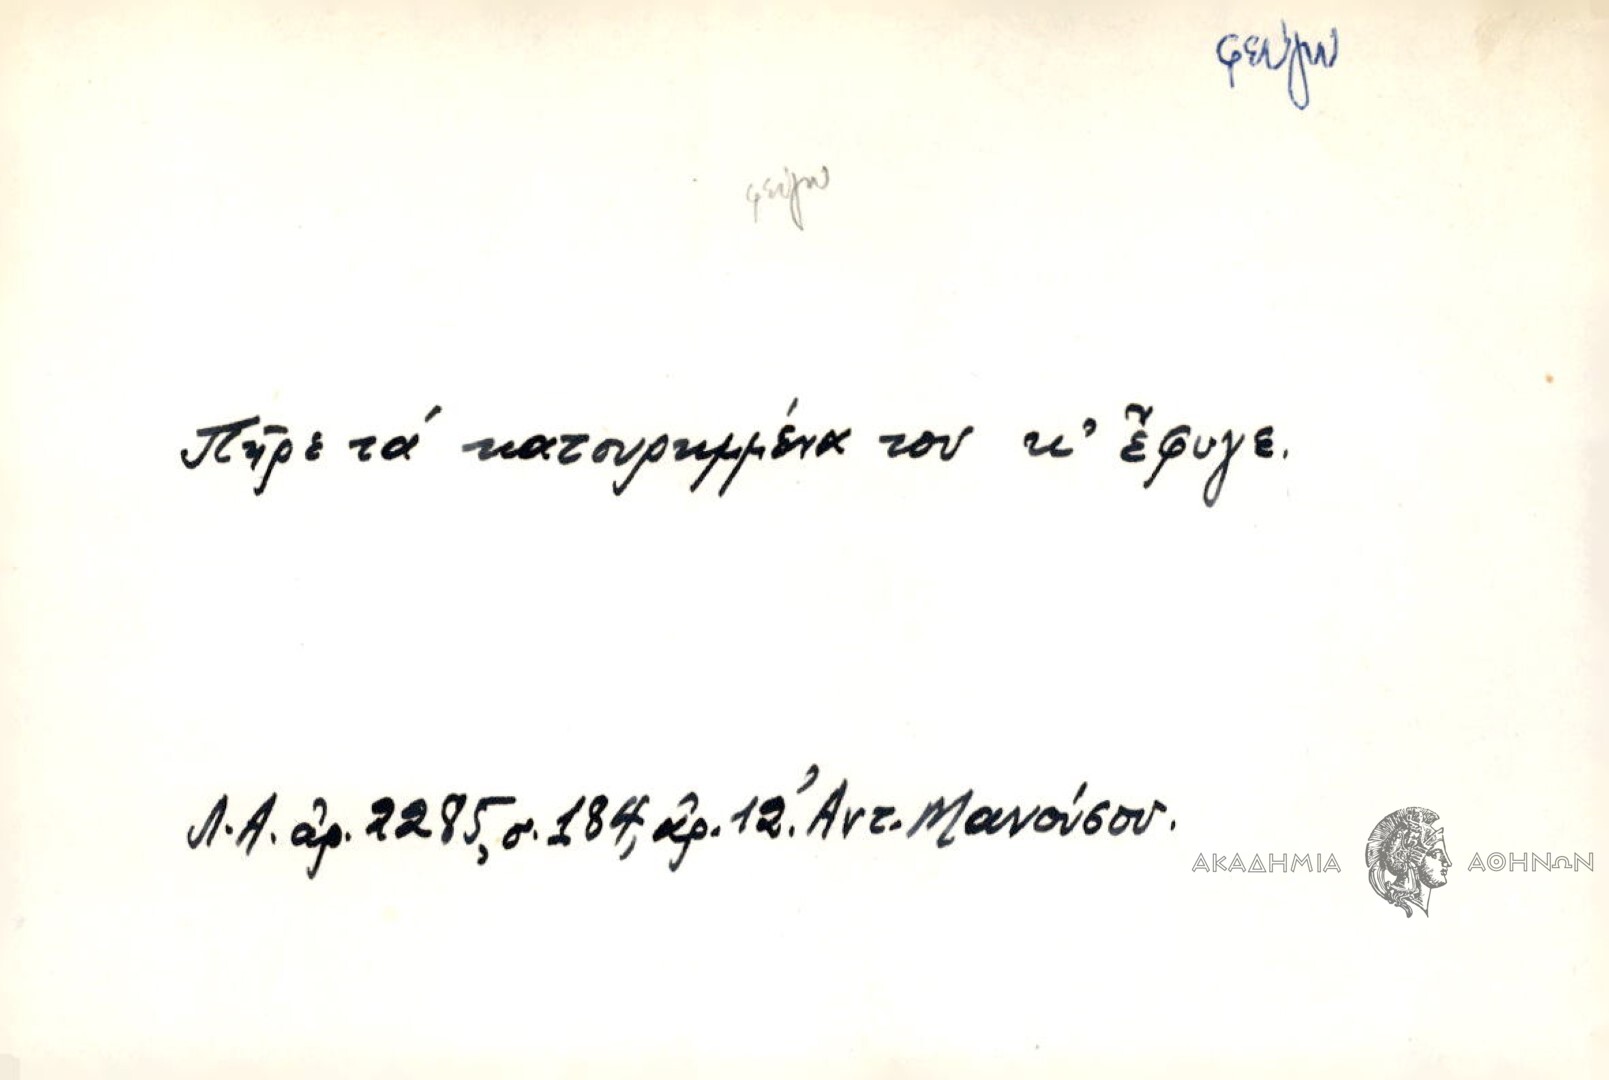 φεύγω
φεύγω
Πῆρε τά κατουρημμένα του κ' ἔφυγε.
Λ.Α. ἀρ. 2285, σ. 184, ἀρ. 12. Ἀντ. Μανούσου.
ΑΚΑΔΗΜΙΑ ΑΘΗΝΩΝ